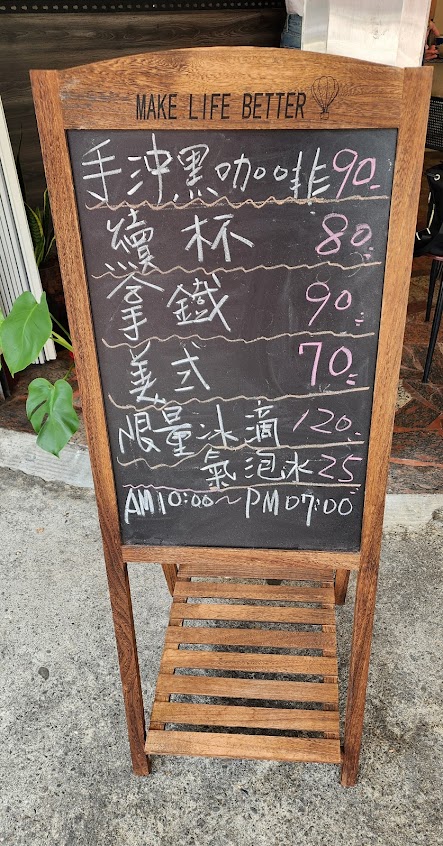 MAKE LIFE BETTER
手沖黑咖啡90.-
續杯 80.-
拿鐵 90.-
美式 70.-
限量冰滴120.-
氣泡水25
AM10:00~PM07:00